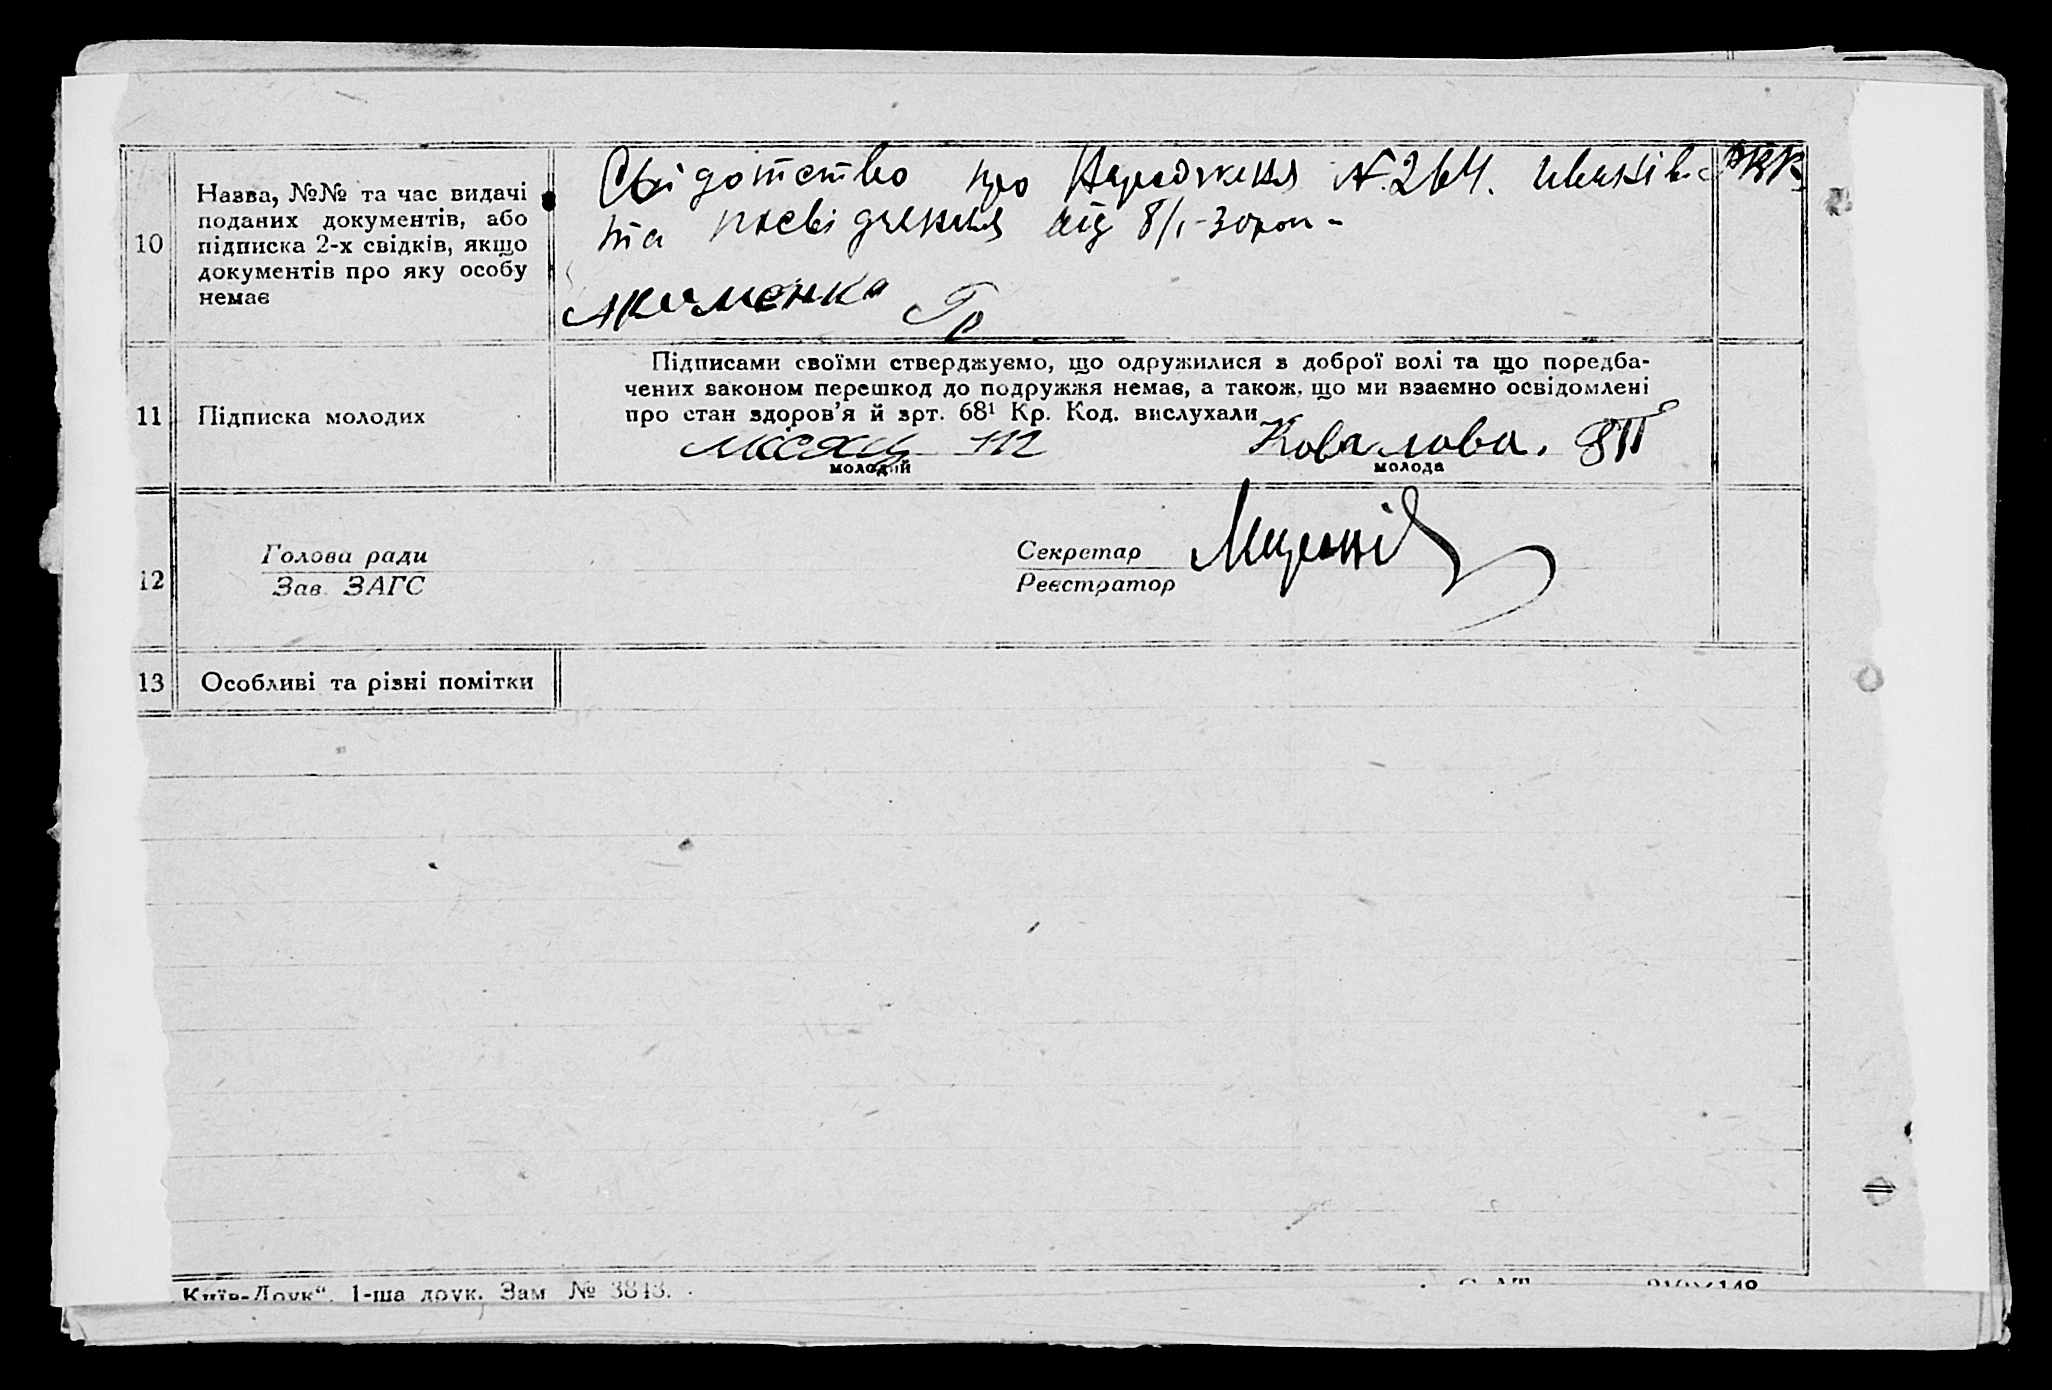 10
Назва, №№ та час видачі
поданих документів, або
підписка 2-х свідків, якщо
документів про яку особу
немає
Свідотство про Народження №264.
та посвідчення від 8/1
Якименка Гр
11
Підписка молодих
Підписами своїми стверджуємо, що одружилися з доброї волі та що поредба-
чених законом перешкод до подружжя немає, а також, що ми взаємно освідомлені
про стан здоров'я й арт. 68¹ Кр. Код. вислухали
Місяц
Ковалова.
молодий
молода
12
Голова ради
Зав. ЗАГС
Секретар
Реєстратор
13
Особливі та різні помітки
Київ-Друк“. 1-ша друк. Зам № 3843.